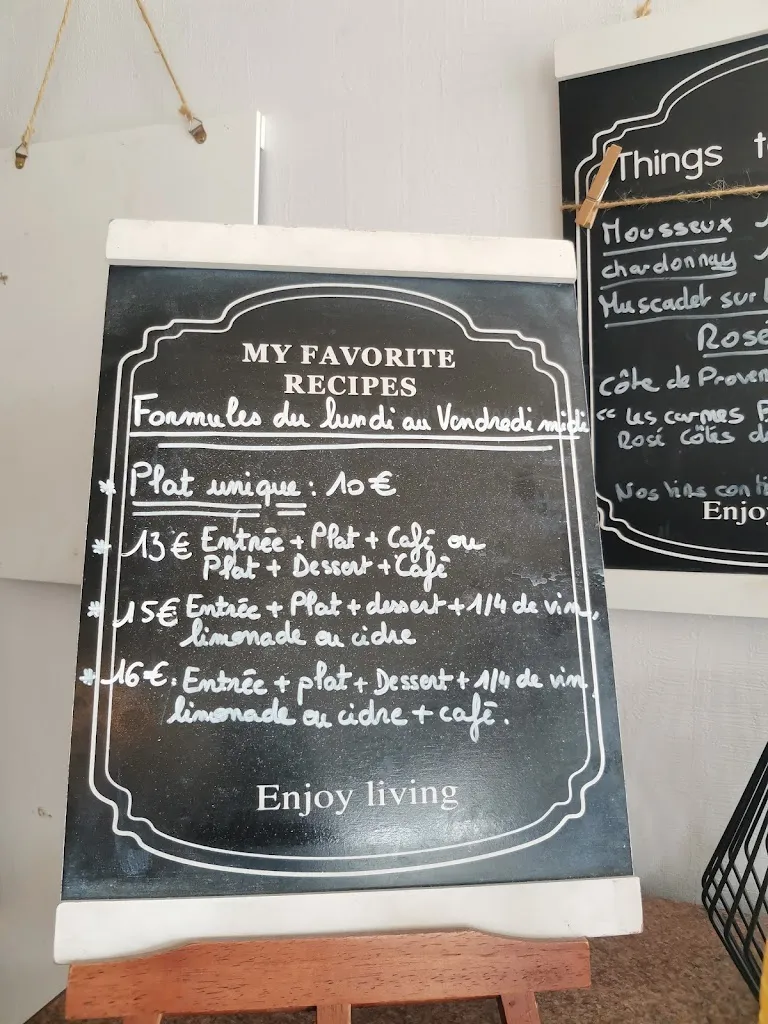 MY FAVORITE
RECIPES
Formules du lundi au Vendredi midi
* Plat unique : 10€
* 13€ Entrée + Plat + Café ou
Plat + Dessert + Café
* 15€ Entrée + Plat + dessert + 1/4 de vin,
limonade ou cidre
* 16€. Entrée + plat + Dessert + 1/4 de vin,
limonade ou cidre + café.
Enjoy living
Things
Mousseux
chardonnay
Muscadet sur
Rosé
Côte de
Les carmes
Rosé Côtes
Nos vins